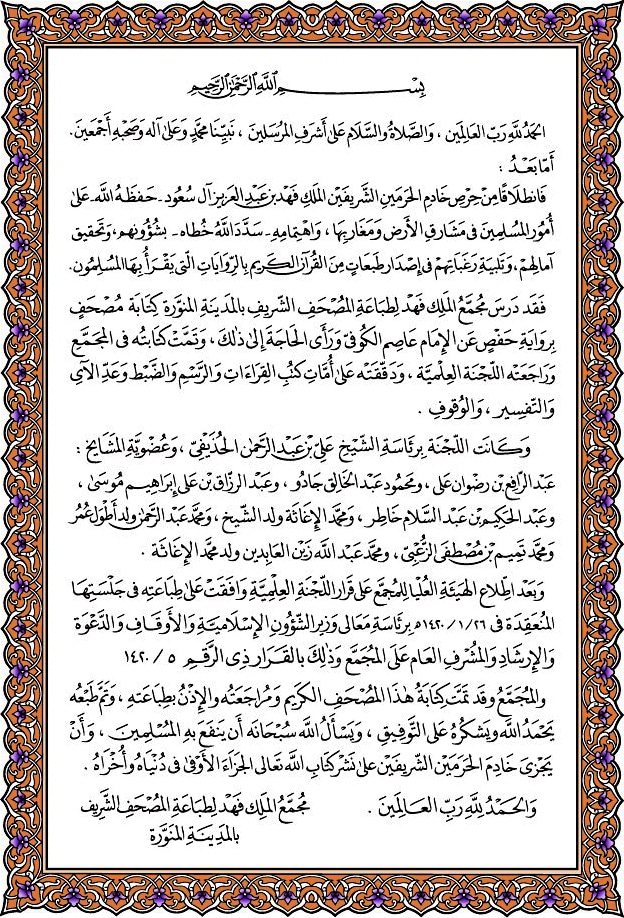 بِسْمِ اللَّهِ الرَّحْمَٰنِ الرَّحِيمِ
الحَمْدُ للَّهِ رَبِّ العَالَمِين ، وَالصَّلَاةُ وَالسَّلَام عَلَى أَشرَفِ المُرْسَلِينَ ، نَبِيِّنَا مُحَمَّدٍ وَعَلَى آلِهِ وَصَحْبِهِ أَجْمَعِينَ.
أَمَّا بَعْدُ :
فَانطِلَاقًا مِنْ حِرْصِ خَادِمِ الحَرَمَينِ الشَّرِيفَيْنِ المَلِكِ فَهْد بن عَبدِ العَزِيز آل سُعُود - حَفِظَهُ اللَّه - عَلَى
أُمُور المُسْلِمِينَ فى مَشَارِقِ الأَرْضِ وَمَغَارِبِهَا ، وَاهْتِمَامِهِ - سَدَّدَ اللَّهُ خُطَاه - بِشُؤُونِهِم، وَتَحقِيق
آمالِهِمْ ، وَتَلبِيَةِ رَغَبَاتِهِمْ فى إِصْدَارِ طَبَعَاتٍ مِنَ القُرْآنِ الكَرِيم بِالرِّوَايَاتِ الَّتى يَقرَأُ بِهَا المُسْلِمُون.
فَقَد دَرَسَ مُجَمَّعُ المَلِك فَهْد لِطِبَاعَةِ المُصْحَف الشَّرِيفِ بِالمَدِينَةِ المُنَوَّرَة كِتَابَةَ مُصْحَفٍ
بِرِوَايَةِ حَفْصٍ عَنِ الإِمَام عَاصِمٍ الكُوفىِّ وَرَأَى الحَاجَةَ إِلى ذٰلِكَ ، وَتَمَّتْ كِتَابَتُه فى المُجَمَّع
وَرَاجَعَتْه اللَّجْنَة العِلْمِيَّة ، وَدَقَّقَتْه عَلَى أُمَّاتِ كتُبِ القِرَاءَاتِ وَالرَّسْمِ وَالضَّبْط وَعَدِّ الآىِ
وَالتَّفْسِيرِ ، وَالوُقُوفِ .
وَكَانَت اللَّجْنَة بِرِئَاسَةِ الشَّيْخ عَلىِّ بن عَبدِ الرَّحمٰنِ الحُذَيفىِّ ، وَعُضْوِيَّةِ المَشَايِخ :
عَبد الرَّافِع بن رِضْوَان عَلى ، وَمَحْمُود عَبد الخَالِق جَادُو ، وَعَبد الرَّزَّاق بن عَلى إِبرَاهِيم مُوسَىٰ ،
وَعَبد الحَكِيم بن عَبد السَّلَام خَاطِر ، وَمحَمَّد الإِغَاثَة وِلد الشَّيخ ، وَمحَمَّد عَبد الرَّحمٰن وِلد أَطوَل عُمُر
وَمحَمَّد تَمِيم بن مُصْطَفَى الزُّعْبىِّ ، وَمحَمَّد عَبد اللَّه زَيْن العَابِدِين وِلد محَمَّد الإِغَاثَة .
وَبَعْدَ اطِّلَاعِ الهَيئَةِ العُليَا لِلمُجَمَّع عَلَى قَرَار اللَّجْنَةِ العِلْمِيَّةِ وَافَقَتْ عَلَى طِبَاعَتِهِ فى جَلْسَتِهَا
المُنعَقِدَة فى ١٤٢٠/١/٢٦ه بِرِئَاسَةِ مَعَالى وَزِير الشُّؤُونِ الإِسْلَامِيَّةِ وَالأَوقَافِ وَالدَّعْوَةِ
وَالإِرشَادِ وَالمُشْرِفِ العَام عَلَى المُجَمَّع وَذٰلِكَ بِالقَرَارِ ذِى الرَّقَمِ ٥ / ١٤٢٠
وَالمُجَمَّعُ وَقَد تمَّتْ كِتَابَةُ هٰذَا المُصْحَفِ الكَرِيم وَمُرَاجَعَتُه وَالإِذْنُ بِطِبَاعَتِهِ ، وَتَمَّ طَبْعُه
يَحْمَدُ اللَّه وَيَشكُرُهُ عَلَى التَّوْفِيقِ ، وَيَسأَلُ اللَّه سُبْحَانَه أَن يَنفَعَ بِهِ المُسْلِمِينَ ، وَأَنْ
يَجْزِىَ خَادِمَ الحَرَمَينِ الشَّرِيفَين عَلَى نَشْرِ كِتَابِ اللَّه تَعَالَى الجَزَاءَ الأَوْفَى فى دُنيَاهُ وَأُخْرَاهُ .
وَالحَمْدُ للَّهِ رَبِّ العَالَمِينَ .
مُجَمَّعُ المَلِك فَهْد لِطِبَاعَةِ المُصْحَف الشَّرِيف
بالمَدِينَةِ المُنَوَّرَة